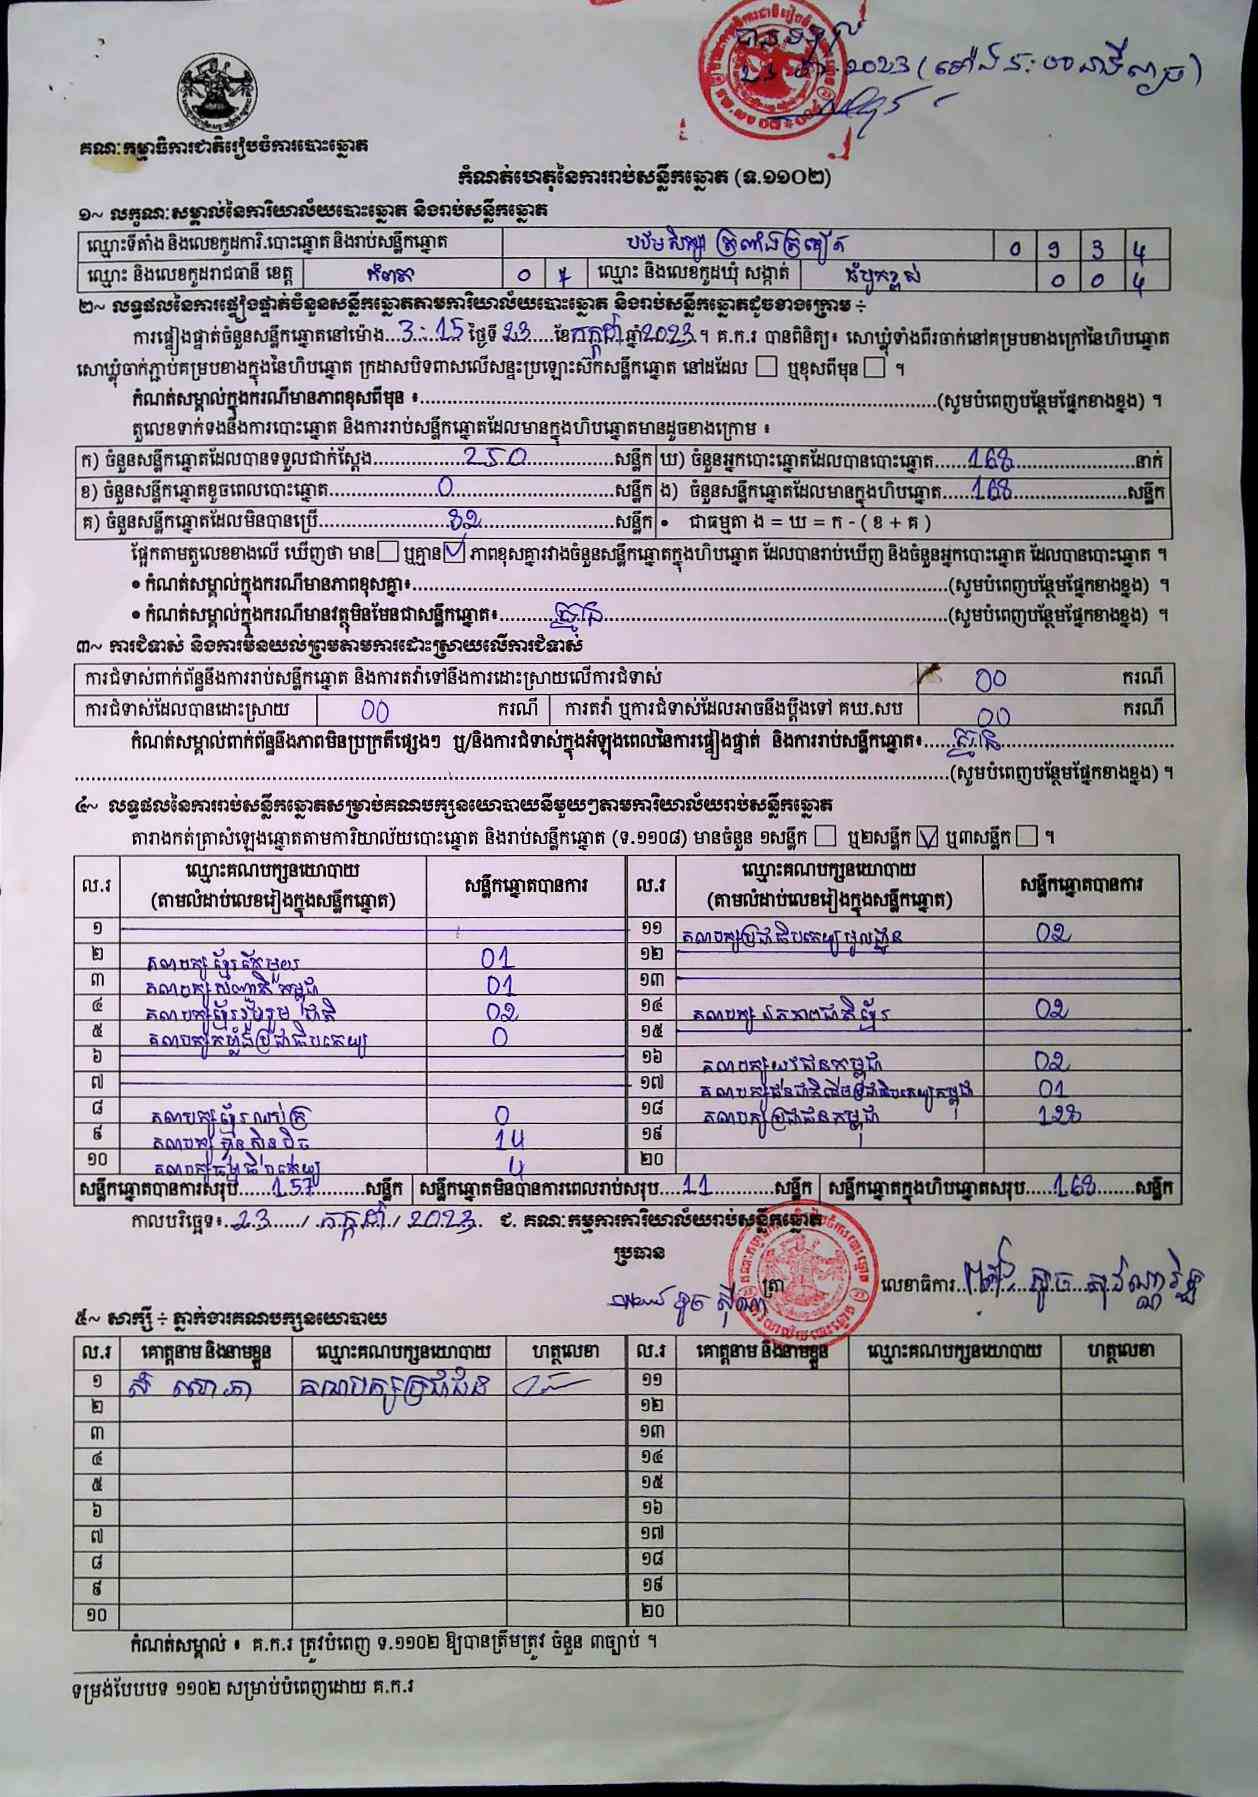 បានទទួល
23 2023 (ម៉ោង
គណៈកម្មាធិការជាតិរៀបចំការបោះឆ្នោត
កំណត់ហេតុនៃការរាប់សន្លឹកឆ្នោត (ទ.១១០២)
១~ លក្ខណៈសម្គាល់នៃការិយាល័យបោះឆ្នោត និងរាប់សន្លឹកឆ្នោត
ឈ្មោះទីតាំង និងលេខកូដការិ.បោះឆ្នោត និងរាប់សន្លឹកឆ្នោត បឋមសិក្សា 0 9 3 4
ឈ្មោះ និងលេខកូដរាជធានី ខេត្ត កំពត 0 7 ឈ្មោះ និងលេខកូដឃុំ សង្កាត់ 0 0 4
២~ លទ្ធផលនៃការផ្ទៀងផ្ទាត់ចំនួនសន្លឹកឆ្នោតតាមការិយាល័យបោះឆ្នោត និងរាប់សន្លឹកឆ្នោតដូចខាងក្រោម ÷
ការផ្ទៀងផ្ទាត់ចំនួនសន្លឹកឆ្នោតនៅម៉ោង...3:15 ថ្ងៃទី 23 ....ខែកក្កដា ឆ្នាំ2023 ។ គ.ក.រ បានពិនិត្យ៖ សោឃ្លុំទាំងពីរចាក់នៅគម្របខាងក្រៅនៃហិបឆ្នោត
សោឃ្លុំចាក់ភ្ជាប់គម្របខាងក្នុងនៃហិបឆ្នោត ក្រដាសបិទពាសលើសន្ទះប្រឡោះស៊កសន្លឹកឆ្នោត នៅដដែល ☐ ឬខុសពីមុន ☐ ។
កំណត់សម្គាល់ក្នុងករណីមានភាពខុសពីមុន ៖..........(សូមបំពេញបន្ថែមផ្នែកខាងខ្នង) ។
តួលេខទាក់ទងនឹងការបោះឆ្នោត និងការរាប់សន្លឹកឆ្នោតដែលមានក្នុងហិបឆ្នោតមានដូចខាងក្រោម ៖
ក) ចំនួនសន្លឹកឆ្នោតដែលបានទទួលជាក់ស្តែង..........250..........សន្លឹក ឃ) ចំនួនអ្នកបោះឆ្នោតដែលបានបោះឆ្នោត......168..........នាក់
ខ) ចំនួនសន្លឹកឆ្នោតខូចពេលបោះឆ្នោត..........0..........សន្លឹក ង) ចំនួនសន្លឹកឆ្នោតដែលមានក្នុងហិបឆ្នោត......168..........សន្លឹក
គ) ចំនួនសន្លឹកឆ្នោតដែលមិនបានប្រើ..........82..........សន្លឹក • ជាធម្មតា ង = ឃ = ក - ( ខ + គ )
ផ្អែកតាមតួលេខខាងលើ ឃើញថា មាន ☐ ឬគ្មាន ☑ ភាពខុសគ្នារវាងចំនួនសន្លឹកឆ្នោតក្នុងហិបឆ្នោត ដែលបានរាប់ឃើញ និងចំនួនអ្នកបោះឆ្នោត ដែលបានបោះឆ្នោត ។
• កំណត់សម្គាល់ក្នុងករណីមានភាពខុសគ្នា៖..........(សូមបំពេញបន្ថែមផ្នែកខាងខ្នង) ។
• កំណត់សម្គាល់ក្នុងករណីមានវត្ថុមិនមែនជាសន្លឹកឆ្នោត៖..........គ្មាន..........(សូមបំពេញបន្ថែមផ្នែកខាងខ្នង) ។
៣~ ការជំទាស់ និងការមិនយល់ព្រមតាមការដោះស្រាយលើការជំទាស់
ការជំទាស់ពាក់ព័ន្ធនឹងការរាប់សន្លឹកឆ្នោត និងការតវ៉ាទៅនឹងការដោះស្រាយលើការជំទាស់ 00 ករណី
ការជំទាស់ដែលបានដោះស្រាយ 00 ករណី ការតវ៉ា ឬការជំទាស់ដែលអាចនឹងប្តឹងទៅ គឃ.សប 00 ករណី
កំណត់សម្គាល់ពាក់ព័ន្ធនឹងភាពមិនប្រក្រតីផ្សេងៗ ឬ/និងការជំទាស់ក្នុងអំឡុងពេលនៃការផ្ទៀងផ្ទាត់ និងការរាប់សន្លឹកឆ្នោត៖......គ្មាន..........
..........(សូមបំពេញបន្ថែមផ្នែកខាងខ្នង) ។
៤~ លទ្ធផលនៃការរាប់សន្លឹកឆ្នោតសម្រាប់គណបក្សនយោបាយនីមួយៗតាមការិយាល័យរាប់សន្លឹកឆ្នោត
តារាងកត់ត្រាសំឡេងឆ្នោតតាមការិយាល័យបោះឆ្នោត និងរាប់សន្លឹកឆ្នោត (ទ.១១០៨) មានចំនួន ១សន្លឹក ☐ ឬ២សន្លឹក ☑ ឬ៣សន្លឹក ☐ ។
ល.រ ឈ្មោះគណបក្សនយោបាយ (តាមលំដាប់លេខរៀងក្នុងសន្លឹកឆ្នោត) សន្លឹកឆ្នោតបានការ ល.រ ឈ្មោះគណបក្សនយោបាយ (តាមលំដាប់លេខរៀងក្នុងសន្លឹកឆ្នោត) សន្លឹកឆ្នោតបានការ
១ ១១ គណបក្សប្រជាធិបតេយ្យមូលដ្ឋាន 02
២ គណបក្សខ្មែរតែមួយ 01 ១២
៣ គណបក្សសញ្ជាតិកម្ពុជា 01 ១៣
៤ គណបក្សខ្មែររួបរួមជាតិ 02 ១៤ គណបក្សឯកភាពជាតិខ្មែរ 02
៥ គណបក្សកម្លាំងប្រជាធិបតេយ្យ 0 ១៥
៦ ១៦ គណបក្សយុវជនកម្ពុជា 02
៧ ១៧ គណបក្សជនជាតិដើមប្រជាធិបតេយ្យកម្ពុជា 01
៨ គណបក្សខ្មែរឈប់ក្រ 0 ១៨ គណបក្សប្រជាជនកម្ពុជា 128
៩ គណបក្សហ៊្វុនស៊ិនប៉ិច 14 ១៩
១០ គណបក្សធម្មាធិបតេយ្យ 4 ២០
សន្លឹកឆ្នោតបានការសរុប......157..........សន្លឹក សន្លឹកឆ្នោតមិនបានការពេលរាប់សរុប....11..........សន្លឹក សន្លឹកឆ្នោតក្នុងហិបឆ្នោតសរុប.....168.......សន្លឹក
កាលបរិច្ឆេទ៖..23....../ កក្កដា / 2023. ជ. គណៈកម្មការការិយាល័យរាប់សន្លឹកឆ្នោត
ប្រធាន
ត្រា លេខាធិការ
៥~ សាក្សី ÷ ភ្នាក់ងារគណបក្សនយោបាយ
ល.រ គោត្តនាម និងនាមខ្លួន ឈ្មោះគណបក្សនយោបាយ ហត្ថលេខា ល.រ គោត្តនាម និងនាមខ្លួន ឈ្មោះគណបក្សនយោបាយ ហត្ថលេខា
១ សំ សោភា គណបក្សប្រជាជន ១១
២ ១២
៣ ១៣
៤ ១៤
៥ ១៥
៦ ១៦
៧ ១៧
៨ ១៨
៩ ១៩
១០ ២០
កំណត់សម្គាល់ ៖ គ.ក.រ ត្រូវបំពេញ ទ.១១០២ ឱ្យបានត្រឹមត្រូវ ចំនួន ៣ច្បាប់ ។
ទម្រង់បែបបទ ១១០២ សម្រាប់បំពេញដោយ គ.ក.រ